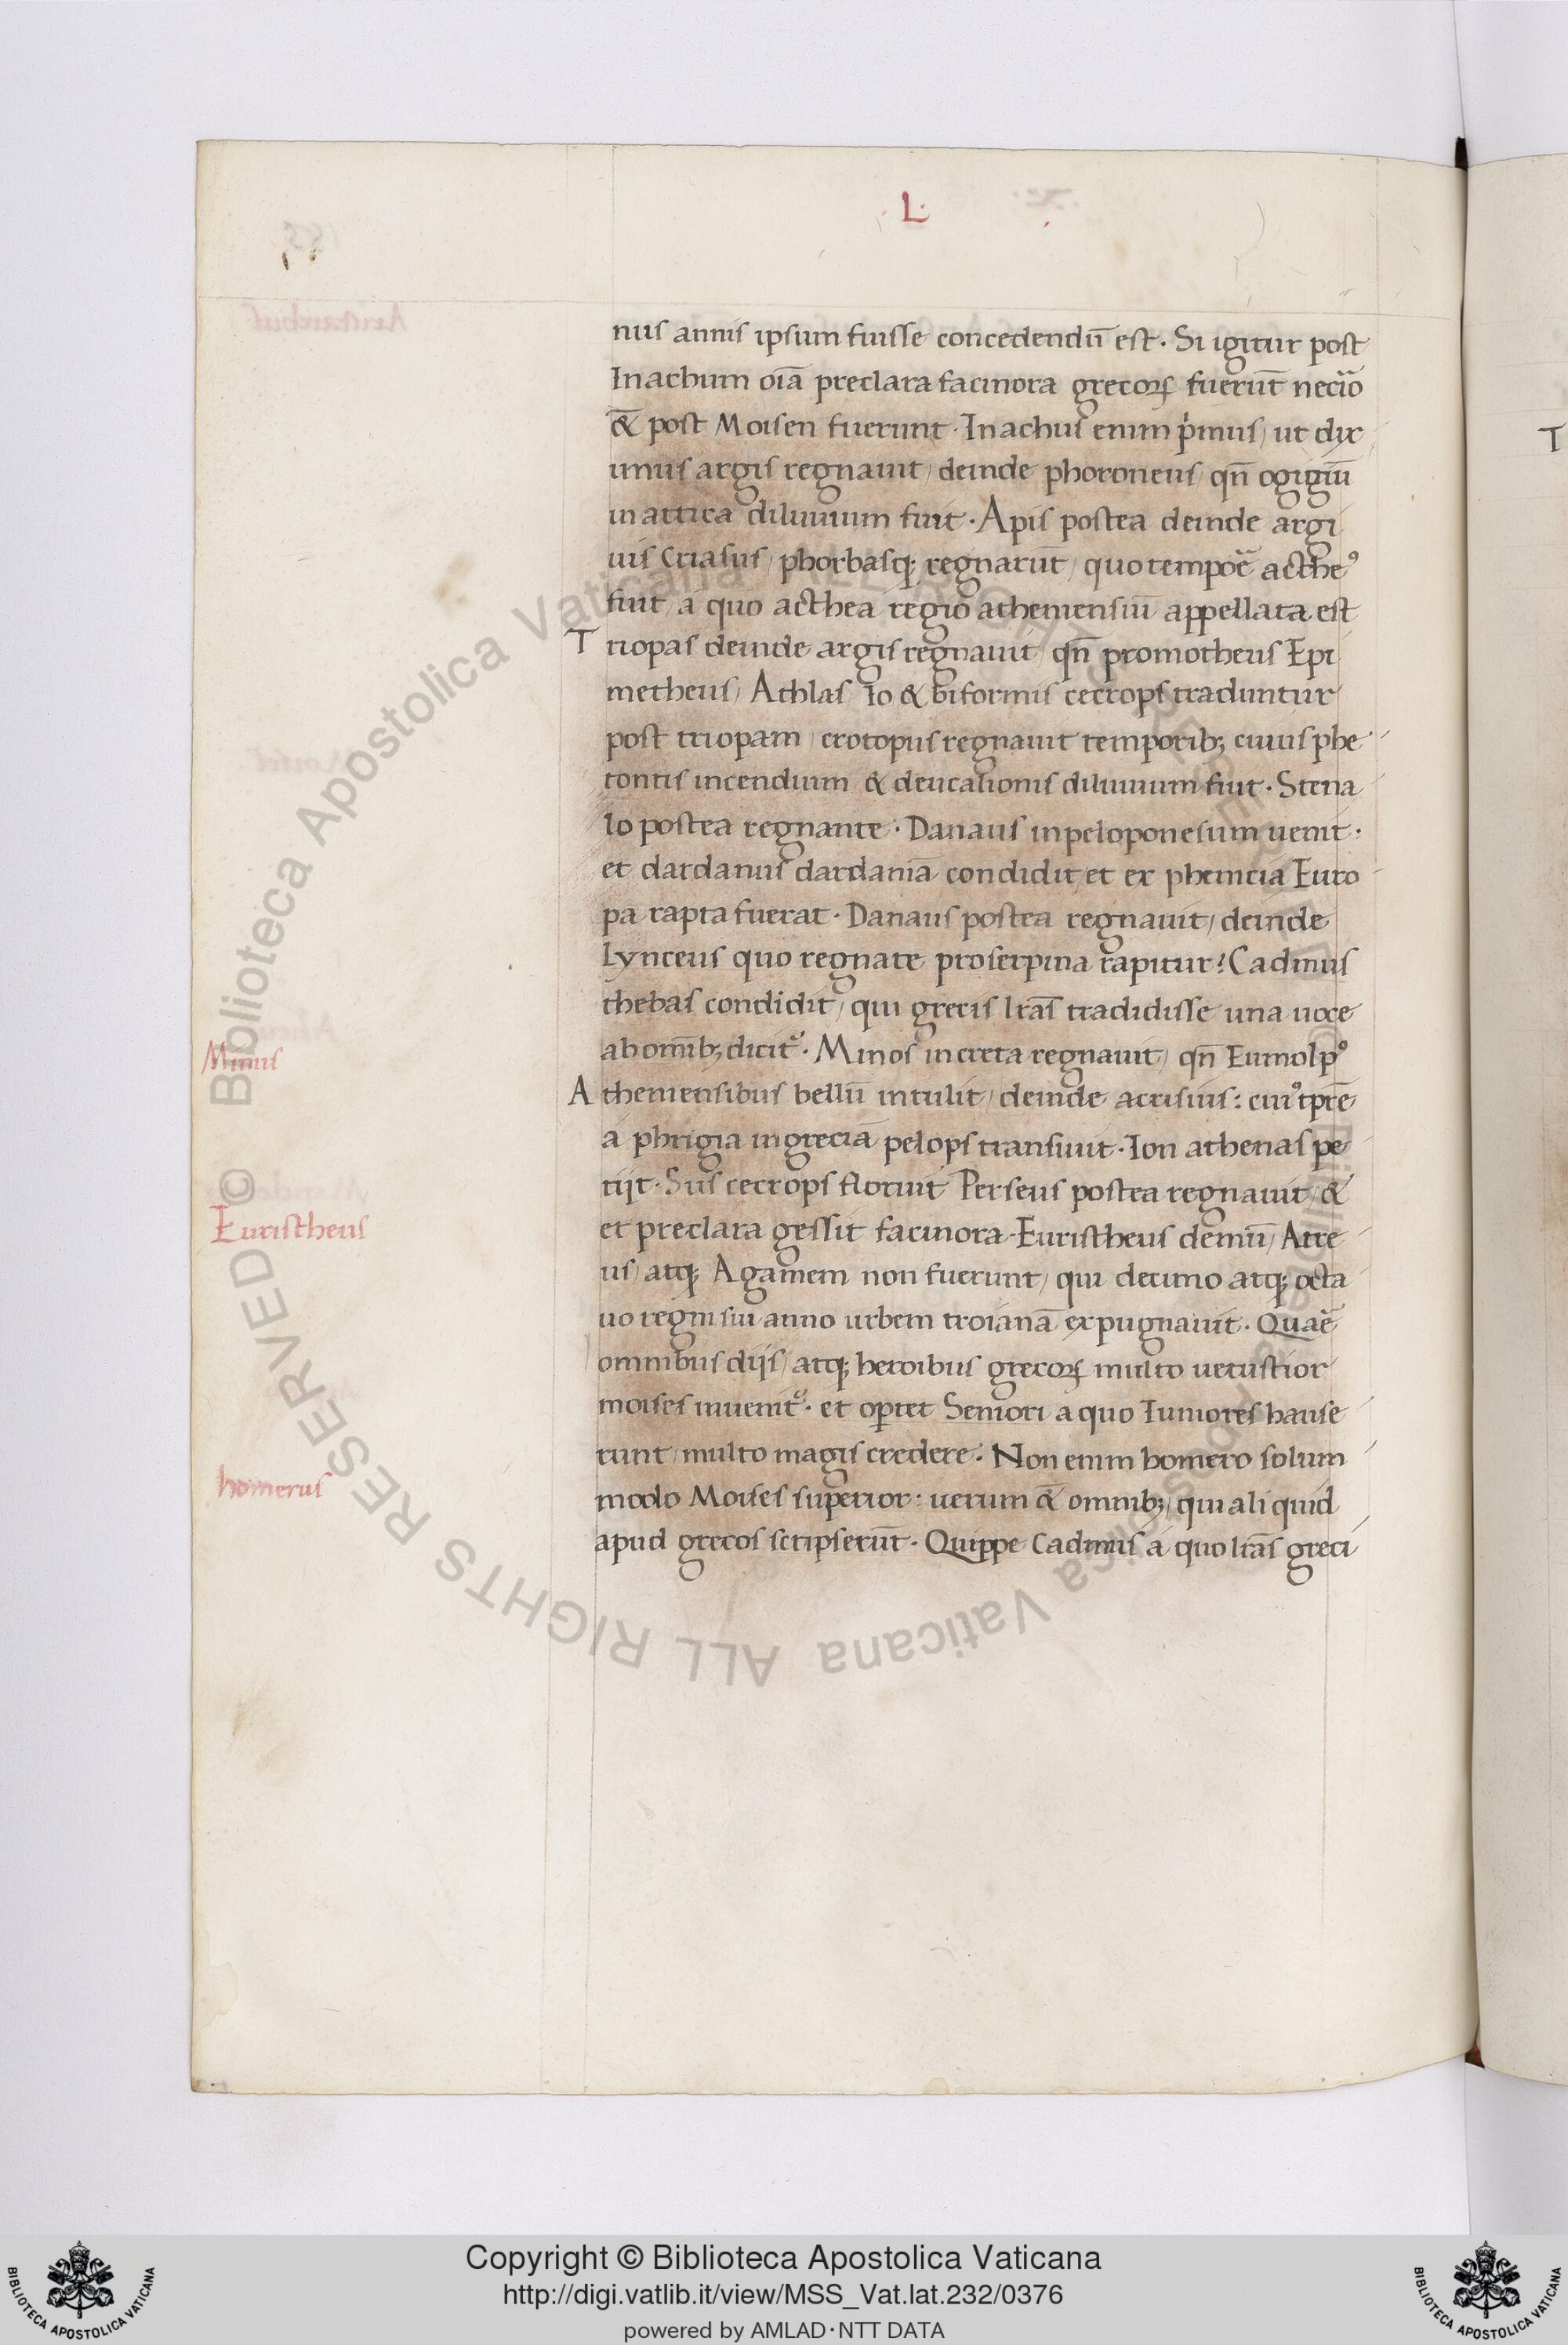 ·L·
nus annis ipsum fuisse concedendū est. Si igitur post
Inachum oīa preclara facinora grecoꝝ fuerūt necio
& post Moisen fuerunt. Inachus enim p̍imus, ut dix
imus argis regnauit, deinde phoroneus, qn̄ ogigiū
in attica diluuium fuit. Apis postea deinde argi
uis Criasus, phorbasq; regnarūt, quo tempoē acthe⁹
fuit, a quo acthea regio atheniensiū appellata est
Triopas deinde argis regnauit, qn̄ promotheus Epi
metheus, Athlas Io & biformis cecrops traduntur
post triopam, crotopus regnauit temporib; cuius phe
tontis incendium & deucalionis diluuium fuit. Stena
lo postea regnante. Danaus in peloponesum uenit.
et dardanus dardaniā condidit, et ex phenicia Euro
pa rapta fuerat. Danaus postea regnauit, deinde
Lynceus quo regnate proserpina rapitur: Cadmus
thebas condidit, qui grecis lrās tradidisse una uoce
ab omīb; dicit᷑. Minos in creta regnauit, qn̄ Eumolp⁹
Minus
Atheniensibus bellū intulit, deinde acrisius: cui⁹ tpr̄e
a phrigia in greciā pelops transiuit. Ion athenas pe
tijt. Sus cecrops floruit Perseus postea regnauit, &
et preclara gessit facinora. Euristheus demū, Atre
Euristheus
us, atq; Agamem non fuerunt, qui decimo atq; octa
uo regni sui anno urbem troianā expugnauit. Quaē
omnibus dijs, atq; heroibus grecoꝝ multo uetustior
moises inuenit᷑. et op̱tet Seniori a quo Iuniores hause
runt, multo magis credere. Non enim homero solum
modo Moises superior: uerum & omnib; qui ali quid
homerus
apud grecos scripserūt. Quippe Cadmus a quo lrās greci
T
Copyright © Biblioteca Apostolica Vaticana
http://digi.vatlib.it/view/MSS_Vat.lat.232/0376
powered by AMLAD·NTT DATA
BIBLIOTECA APOSTOLICA VATICANA
BIBLIOTECA APOSTOLICA VATICANA
© Biblioteca Apostolica Vaticana ALL RIGHTS RESERVED